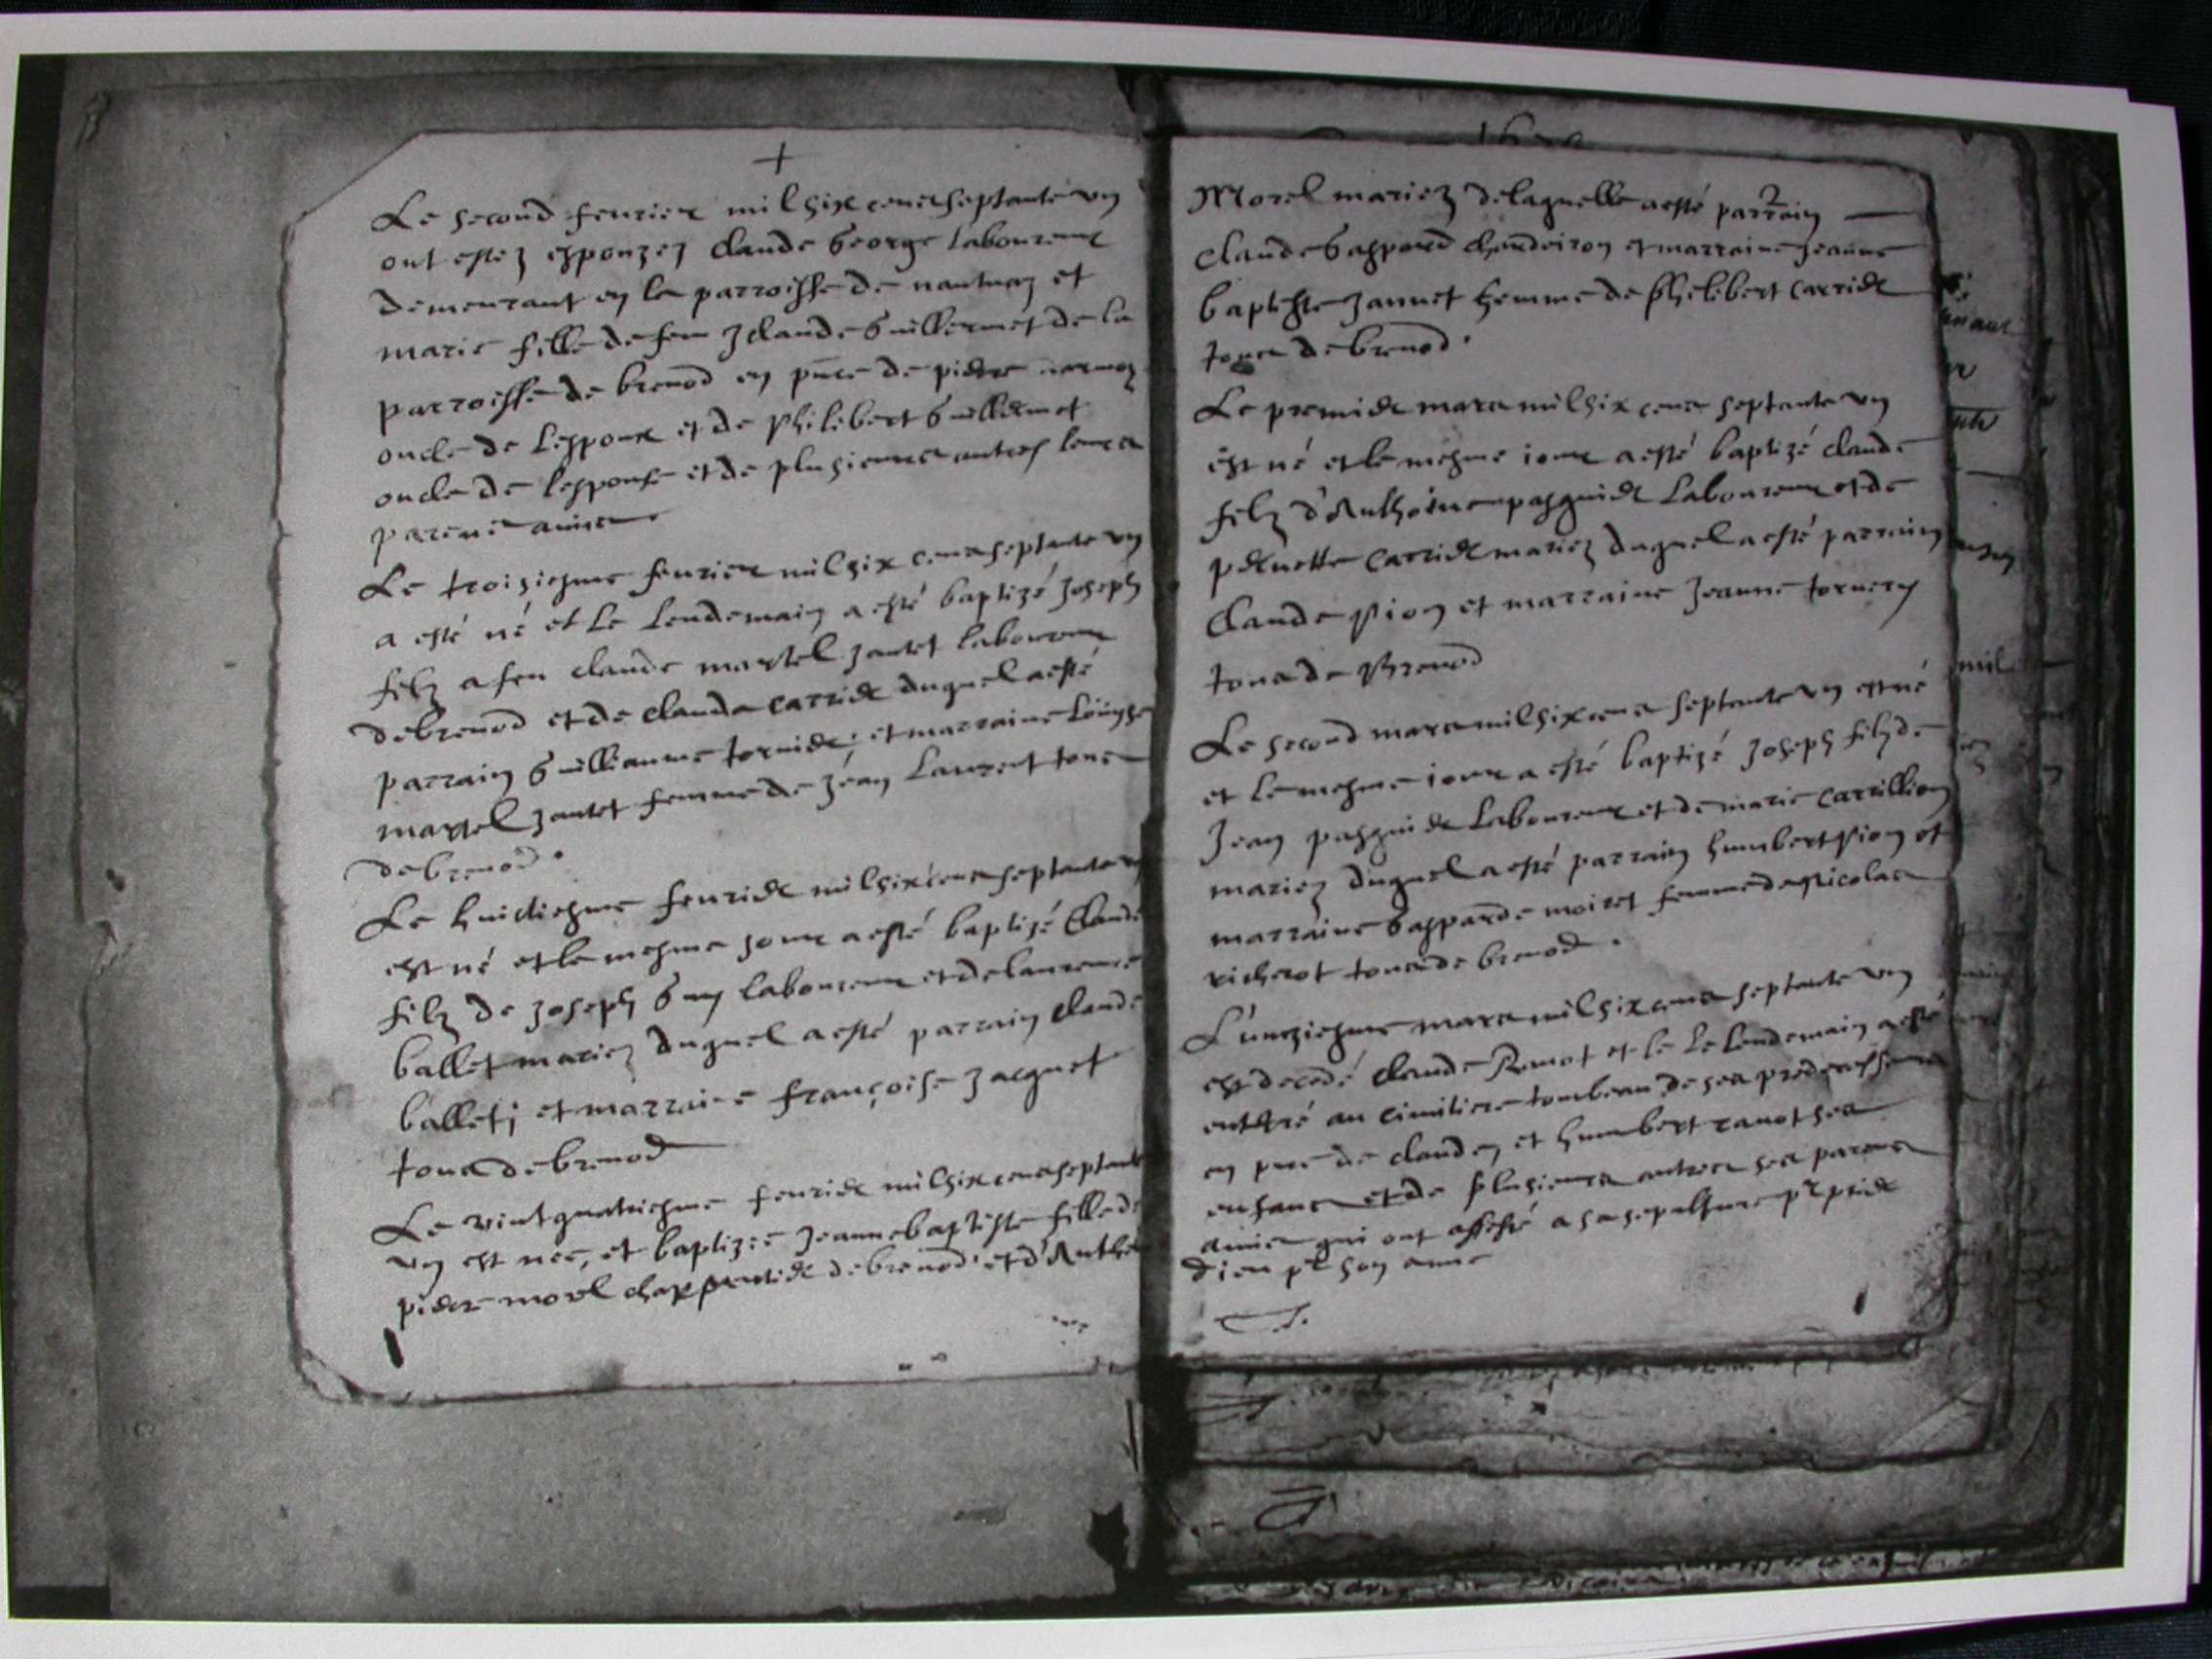 +
Le second feurier mil six cens septante vn
ont estez espouzez Claude George laboureur
demeurant en la parroisse de nantuaz et
marie fille de feu Claude Guillermet de la
parroisse de brenod en pnce de pierre
oncle de lespoux et de philibert Guillermet
oncle de lespouse et de plusieurs autres leurs
parens amis
Le troiziesme feurier mil six cens septante vn
a esté né et le lendemain a esté baptizé Joseph
filz a feu Claude martel Jantet laboureur
de brenod et de Clauda Carrier duquel a esté
parrain Guilliaume tornier, et marraine Louyse
martel Jantet femme de Jean Laurent tous
de brenod.
Le huictiesme feurier mil six cens septante v
est né et le mesme jour a esté baptizé Claude
filz de Joseph Guy laboureur et de laurence
ballet mariez duquel a esté parrain Claude
ballet et marraine françoise Jacquet
tous de brenod
Le vint quatriesme feurier mil six cens septante
vn est née, et baptizée Jeanne baptiste fille de
pierre morel charpentier de brenod et d'Anthe
1670
Morel mariez de laquelle a esté parrain
Claude Gaspard Chandeiron et marraine Jeanne
baptiste Jannet femme de philibert Carrier
tous de brenod.
Le premier mars mil six cens septante vn
est né et le mesme iour a esté baptizé Claude
filz d'Anthoine pasquier laboureur et de
pernette Carrier mariez duquel a esté parrain
Claude pion et marraine Jeanne tornery
tous de Brenod
Le second mars mil six cens septante vn est né
et le mesme iour a esté baptizé Joseph filz de
Jean pasquier laboureur et de marie Carrillion
mariez duquel a esté parrain humbert pion et
marraine Gasparde moiret femme de Nicolas
richerot tous de brenod.
L'unziesme mars mil six cens septante vn
est decedé Claude Ramot et le le lendemain a esté
enterré au cimitiere tombeau de ses predecesseurs
en pnce de Claude, et humbert ramot ses
enfans et de plusieurs autres ses parens
amis qui ont assisté a sa sepulture pr prier
Dieu pr son ame